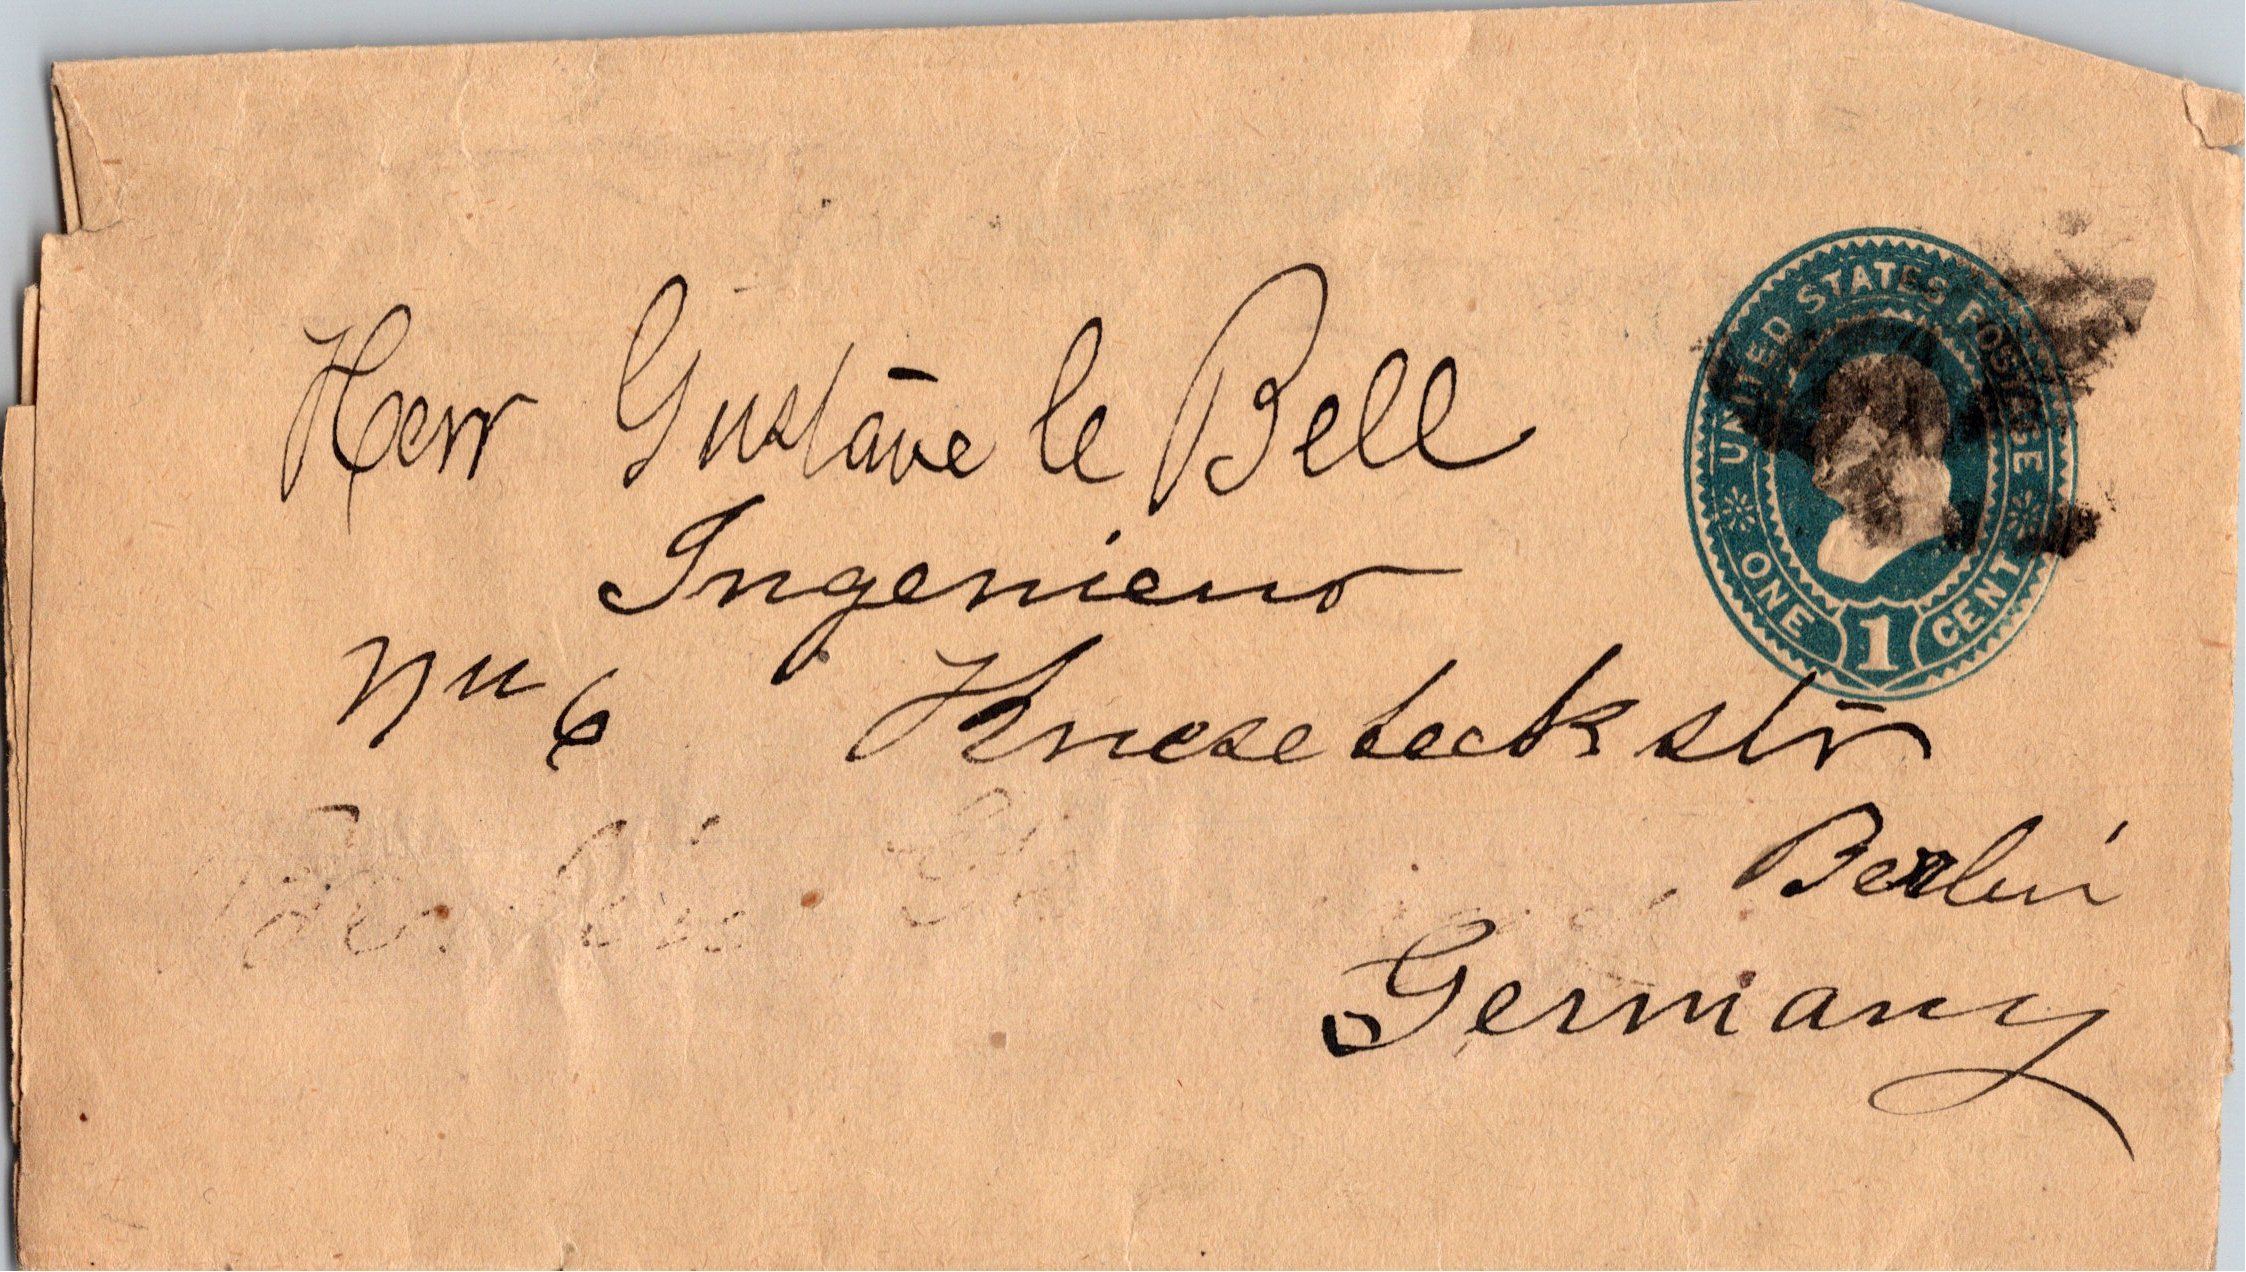 UNITED STATES POSTAGE
ONE 1 CENT
Herr Gustave le Bell
Ingenieur
Nu 6 Knesebeckstr
Berlin
Germany